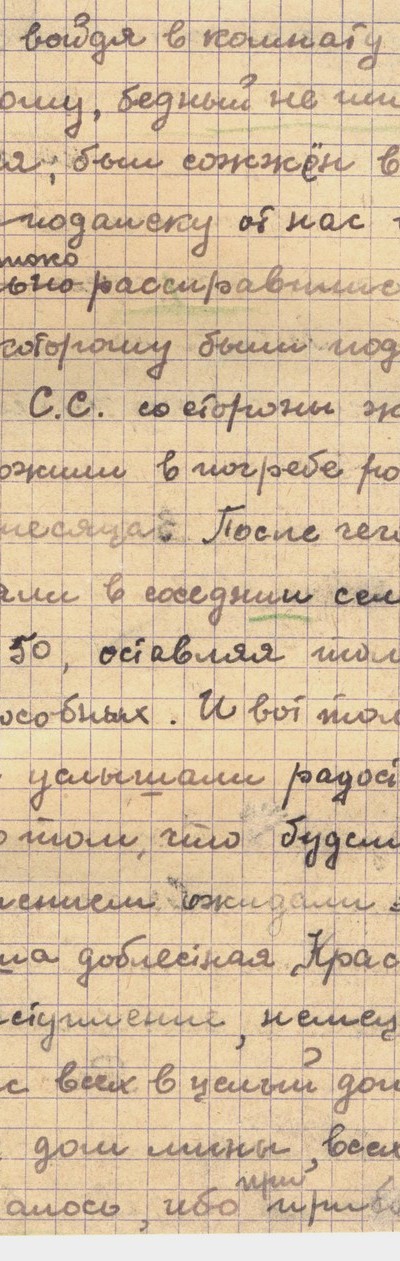 войдя в комнату
ому, бедный не
ся, был сожжён в
подписку от нас
токо
ьно расправившис
которому были под
С.С. со стороны
ожили в погребе ро
месяца. После чего
али в соседнии сел
50, оставляя
особных. И вот
услышали радост
о том, что будем
ением ожидали
ша доблестная Крас
ступление, немец
с всех в целый дом
дом мины, всех
при
алось, ибо